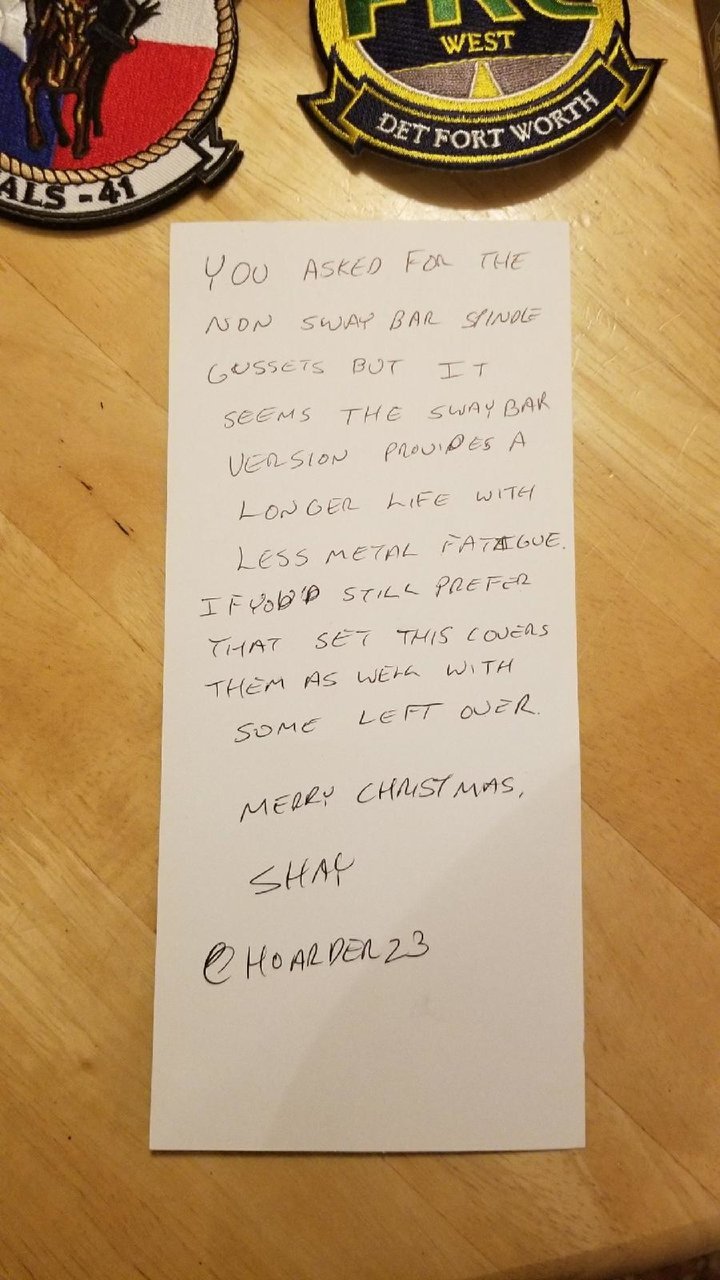 FRC
WEST
DET FORT WORTH
ALS - 41
YOU ASKED FOR THE
NON SWAY BAR SPINDLE
GUSSETS BUT IT
SEEMS THE SWAYBAR
VERSION PROVIDES A
LONGER LIFE WITH
LESS METAL FATIGUE.
IF YOU'D STILL PREFER
THAT SET THIS COVERS
THEM AS WELL WITH
SOME LEFT OVER.
MERRY CHRISTMAS,
SHAY
@HOARDER23